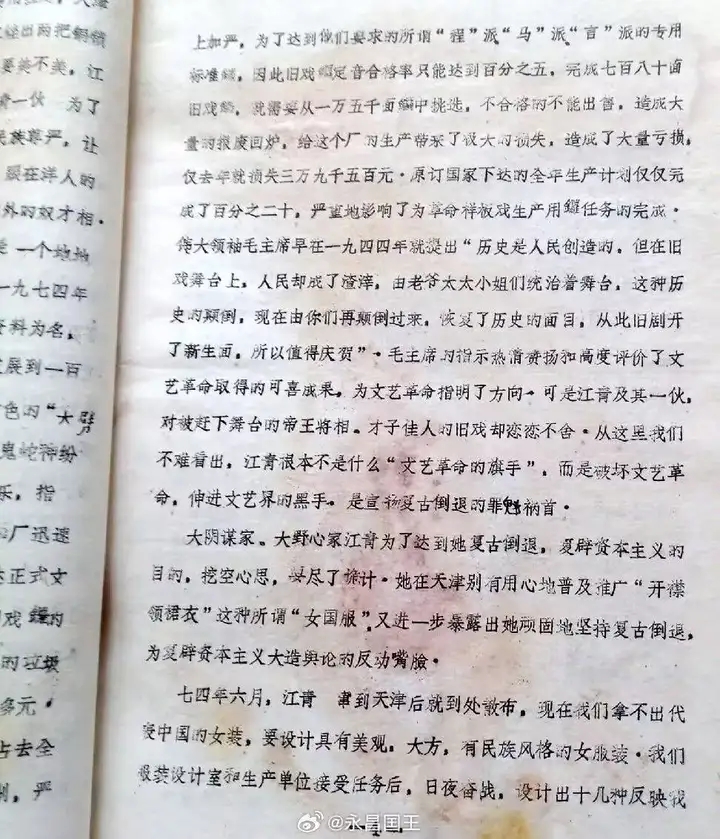 津
出两把铜锁
要美不美，江
青一伙 为了
民族尊严，让
跟在洋人的
外的奴才相。
一个地地
一九七四年
资料为名，
发展到一百
色的“大
鬼蛇神纷
乐，指
厂迅速
达正式文
戏锣的
的垃圾
多元。
占去全
制，严
上加严，为了达到他们要求的所谓“程”派“马”派“言”派的专用
标准锣，因此旧戏锣定音合格率只能达到百分之五，完成七百八十面
旧戏锣，就需要从一万五千面锣中挑选，不合格的不能出售，造成大
量的报废回炉，给这个厂的生产带来了极大的损失，造成了大量亏损，
仅去年就损失三万九千五百元。原订国家下达的全年生产计划仅仅完
成了百分之二十，严重地影响了为革命样板戏生产用锣任务的完成。
伟大领袖毛主席早在一九四四年就提出“历史是人民创造的，但在旧
戏舞台上，人民却成了渣滓，由老爷太太小姐们统治着舞台，这种历
史的颠倒，现在由你们再颠倒过来，恢复了历史的面目，从此旧剧开
了新生面，所以值得庆贺”。毛主席的指示热情赞扬和高度评价了文
艺革命取得的可喜成果，为文艺革命指明了方向。可是江青及其一伙，
对被赶下舞台的帝王将相。才子佳人的旧戏却恋恋不舍。从这里我们
不难看出，江青根本不是什么“文艺革命的旗手”，而是破坏文艺革
命，伸进文艺界的黑手。是宣扬复古倒退的罪魁祸首。
大阴谋家。大野心家江青为了达到她复古倒退，复辟资本主义的
目的，挖空心思，耍尽了诡计。她在天津别有用心地普及推广“开襟
领裙衣”这种所谓“女国服”，又进一步暴露出她顽固地坚持复古倒退，
为复辟资本主义大造舆论的反动嘴脸。
七四年六月，江青 窜到天津后就到处散布，现在我们拿不出代
表中国的女装，要设计具有美观。大方，有民族风格的女服装。我们
服装设计室和生产单位接受任务后，日夜奋战，设计出十几种反映我
@永昌国王